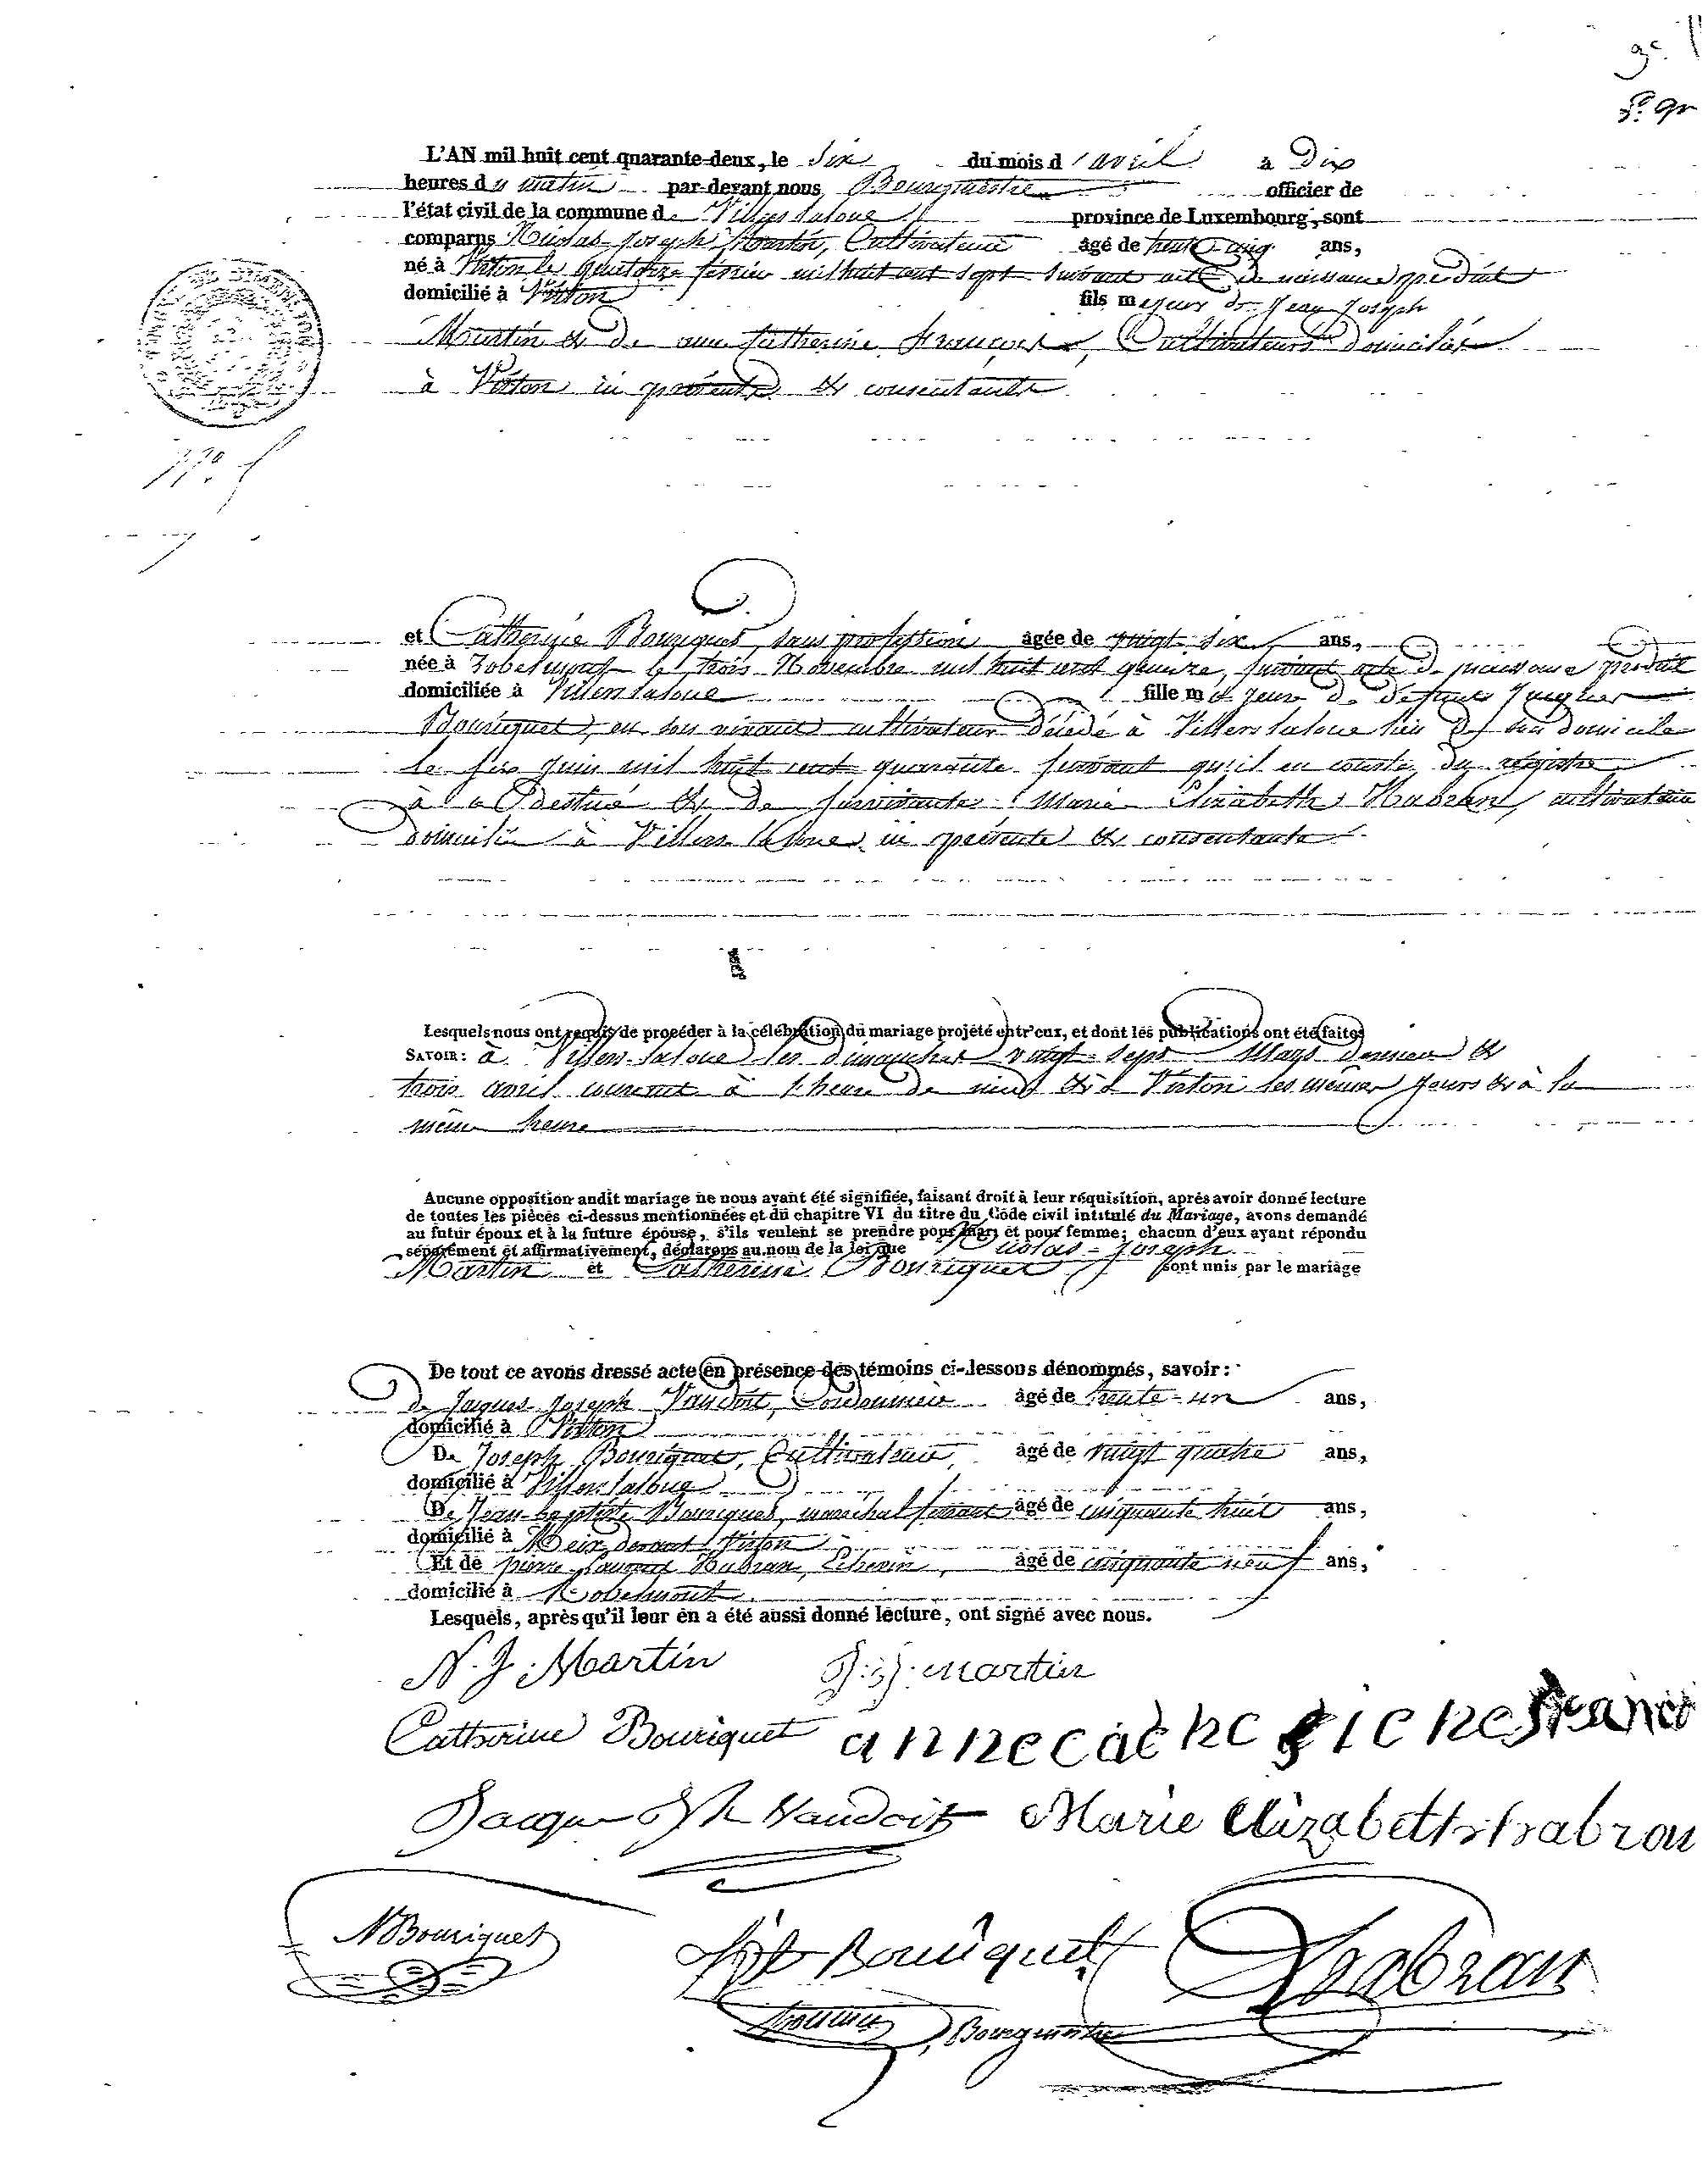 L'AN mil huit cent quarante-deux, le Six du mois d'avril à Dix
heures du matin par-devant nous Bourgmestre officier de
l'état civil de la commune de Villers laloue province de Luxembourg, sont
comparus Nicolas-Joseph Martin, Cultivateur âgé de trente-cinq ans,
né à Virton le quatorze février mil huit cent sept suivant acte de naissance produit
domicilié à Virton fils majeur de Jean Joseph
Martin & de anne Catherine François, Cultivateurs domiciliés
à Virton ici présents & consentants
N°
et Catherine Bouriquet, sans profession âgée de vingt-six ans,
née à robelmont le trois Novembre mil huit cent quinze, suivant acte de naissance produit
domiciliée à Villers laloue fille majeure de défunt
Bouriquet, en son vivant cultivateur décédé à Villers laloue lieu de son domicile
le six Juin mil huit cent quarante suivant qu'il en conste du registre
à ce destiné & de survivante Marie Elizabeth Habran, cultivateur
domiciliée à Villers laloue, ici présente & consentante
Lesquels nous ont requis de procéder à la célébration du mariage projeté entr'eux, et dont les publications ont été faites
SAVOIR: à Villers-laloue les dimanches vingt-sept Mars dernier &
trois avril courant à l'heure de midi & à Virton les mêmes jours & à la
même heure
Aucune opposition audit mariage ne nous ayant été signifiée, faisant droit à leur réquisition, après avoir donné lecture
de toutes les pièces ci-dessus mentionnées et du chapitre VI du titre du Code civil intitulé du Mariage, avons demandé
au futur époux et à la future épouse, s'ils veulent se prendre pour mari et pour femme; chacun d'eux ayant répondu
séparément et affirmativement, déclarons au nom de la loi que Nicolas-Joseph
Martin et Catherine Bouriquet sont unis par le mariage
De tout ce avons dressé acte en présence des témoins ci-dessous dénommés, savoir:
De Jaques Joseph Vaudoit, Cordonnier âgé de trente-un ans,
domicilié à Virton
De Joseph Bouriquet, Cultivateur, âgé de vingt quatre ans,
domicilié à Villers laloue
De Jean-baptiste Bouriquet, maréchal ferrant âgé de cinquante huit ans,
domicilié à Meix devant Virton
Et de pierre Laurent Habran, Echevin, âgé de cinquante neuf ans,
domicilié à Robelmont.
Lesquels, après qu'il leur en a été aussi donné lecture, ont signé avec nous.
N. J. Martin J: J: Martin
Catherine Bouriquet anne
Jacque Jph Vaudoit Marie Elizabeth habran
Bouriquet
Bouriquet Habran
Bourgmestre